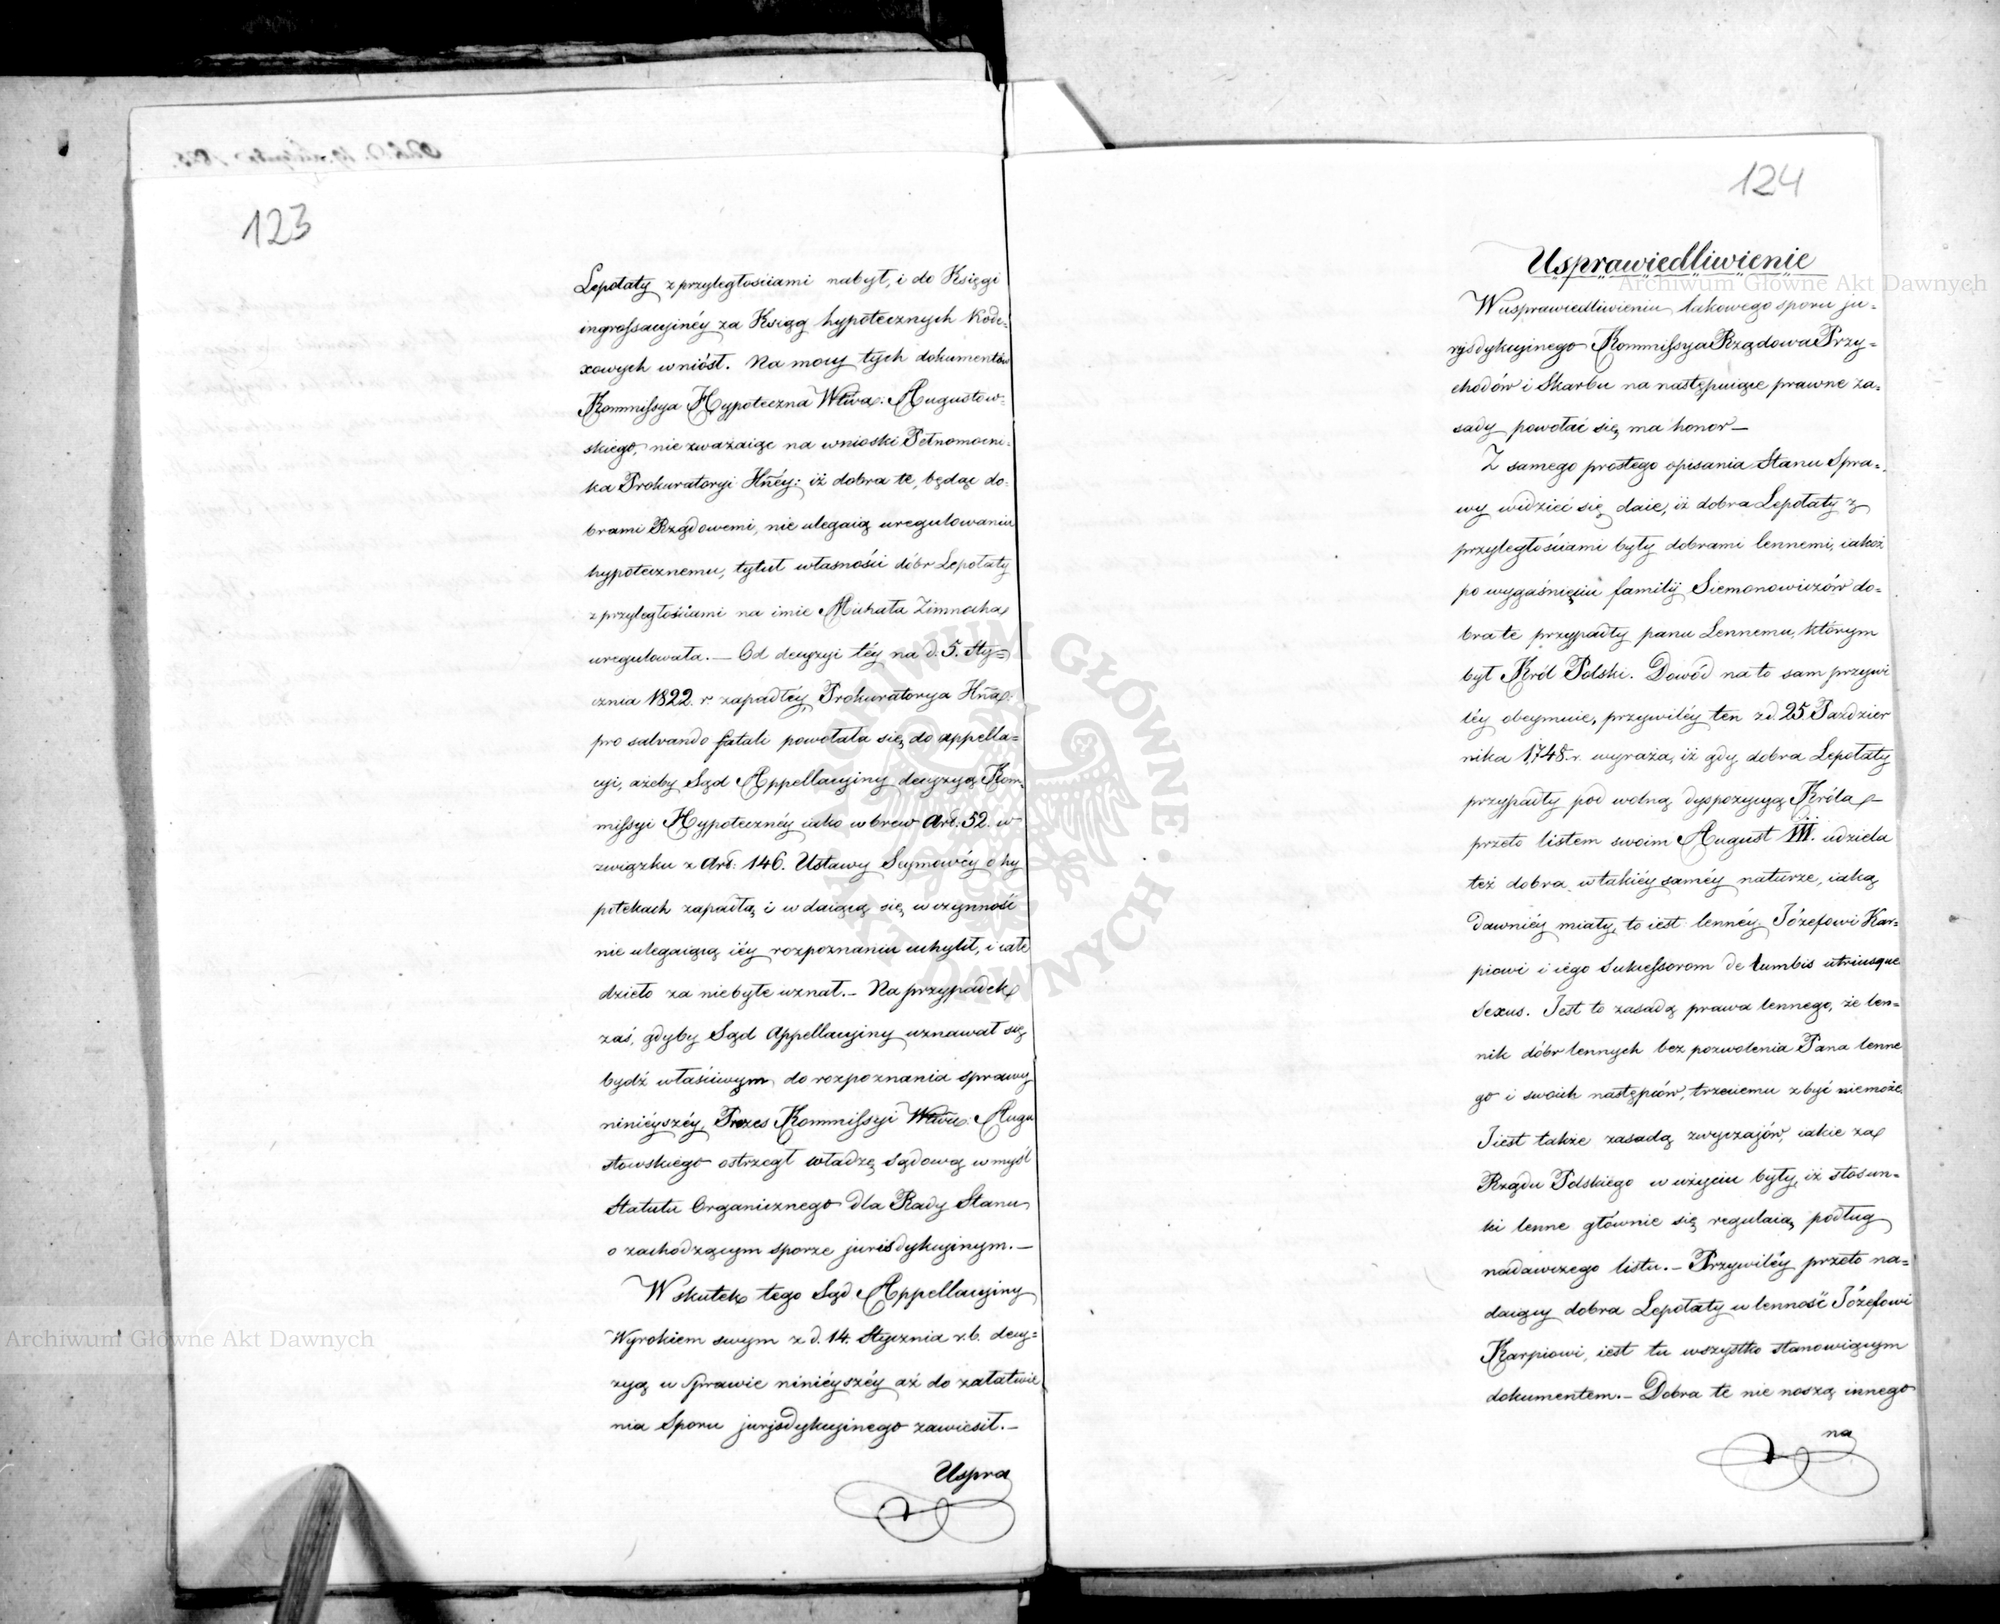 123
Lepołaty z przyległościami nabył, i do Księgi
ingrossacyinéy za Księgę hypotecznych Kode-
xowych wniósł. Na mocy tych dokumentów
Kommissya Hypoteczna Wtwa: Augustow-
skiego, nie zważaiąc na wnioski Pełnomocni-
ka Prokuratoryi Hnéy: iż dobra te, będąc do-
brami Rządowemi, nie ulegaią uregulowaniu
hypotecznemu, tytuł własności dóbr Lepołaty
z przyległościami na imie Michała Zimnocha
uregulowała. — Od decyzyi téy na d. 5. Sty=
cznia 1822. r. zapadłéy Prokuratorya Hna:
pro salvando fatali powołała się do appella=
cyi, ażeby Sąd Appellacyiny decyzyą Kom-
missyi Hypotecznéy iako wbrew Art. 52. w
związku z Art: 146. Ustawy Seymowéy o hy
potekach zapadłą i wdaiącą się w czynność
nie ulegaiącą iéy rozpoznaniu uchylił, i całe
dzieło za niebyłe uznał. — Na przypadek
zaś, gdyby Sąd Appellacyiny uznawał się
bydź właściwym do rozpoznania sprawy
niniéyszéy, Prezes Kommissyi Wtwa: Augu
stowskiego ostrzegł władzę sądową w myśl
Statutu Organicznego dla Rady Stanu
o zachodzącym sporze jurisdykcyinym. —
W skutek tego Sąd Appellacyiny
Wyrokiem swym z d. 14. Stycznia r. b. decy=
zyą w Sprawie niniéyszéy aż do załatwie
nia Sporu jurysdykcyinego zawiesił. —
Uspra
124
Usprawiedliwienie
W usprawiedliwieniu takowego sporu ju-
rysdykcyinego Kommissya Rządowa Przy=
chodów i Skarbu na następuiące prawne za-
sady powołać się ma honor —
Z samego prostego opisania Stanu Spra-
wy widzieć się daie, iż dobra Lepołaty z
przyległościami były dobrami lennemi, iakoż
po wygaśnięciu familij Siemonowiczów do=
bra te przypadły panu Lennemu, którym
był Król Polski. Dowód na to sam przywi
léy obeymuie, przywiléy ten z d. 25. Paździer
nika 1748. r. wyraża, iż gdy dobra Lepołaty
przypadły pod wolną dyspozycyą Króla —
przeto listem swoim August III. udziela
też dobra w takiéy saméy naturze, iaką
dawniéy miały, to iest lennéy Józefowi Kar-
piowi i iego Sukcessorom de lumbis utriusque
sexus. Jest to zasadą prawa lennego, że len=
nik dóbr lennych bez pozwolenia Pana lenne
go i swoich następców, trzeciemu zbyć niemoże.
Jiest także zasadą zwyczajów, iakie za
Rządu Polskiego w użyciu były, iż stosun=
ki lenne głównie się regulaią podług
nadawczego listu. — Przywiléy przeto na=
daiący dobra Lepołaty w lenność Józefowi
Karpiowi, iest tu wszystko stanowiącym
dokumentem. — Dobra te nie noszą innego
na
Archiwum Główne Akt Dawnych
Archiwum Główne Akt Dawnych
ARCHIWUM GŁÓWNE AKT DAWNYCH